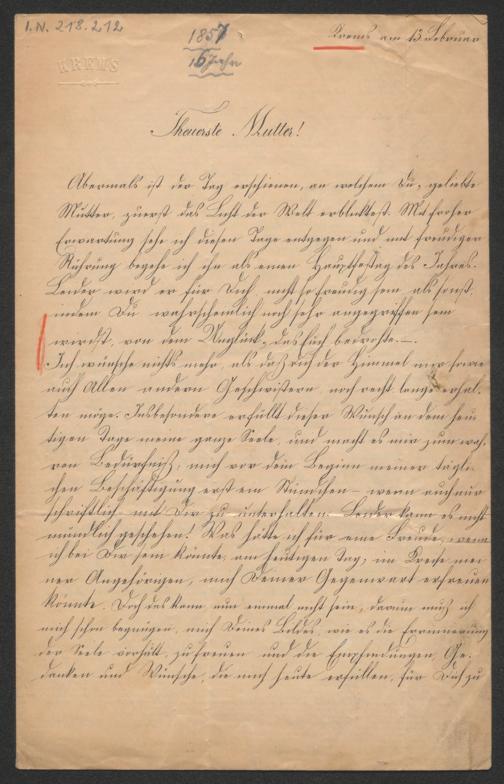 I. N. 218.212
1857
16 Jahr
Krems am 13 Februar
KREMS
Theuerste Mutter!
Abermals ist der Tag erschienen, an welchem Du, geliebte
Mutter, zuerst das Licht der Welt erblicktest. Mit froher
Erwartung sehe ich diesem Tage entgegen und mit freudiger
Rührung begehe ich ihn als einen Hauptfesttag des Jahres.
Leider wird er für Dich nicht so freudig sein als sonst,
indem Du wahrscheinlich noch sehr angegriffen sein
wirst, von dem Unglück, das Euch bedrohte. —
Ich wünsche nichts mehr, als daß Dich der Himmel mir sowie
auch allen andern Geschwistern noch recht lange erhal-
ten möge. Insbesondere erfüllt dieser Wunsch an dem heu-
tigen Tage meine ganze Seele, und macht es mir zum wah-
ren Bedürfniß, mich vor dem Beginn meiner tägli-
chen Beschäftigung erst ein Stündchen – wenn auch nur
schriftlich mit Dir zu unterhalten. Leider kann es nicht
mündlich geschehen. Was hätte ich für eine Freude, wenn
ich bei Dir sein könnte, am heutigen Tag, im Kreise mei-
ner Angehörigen, mich Deiner Gegenwart erfreuen
könnte. Doch das kann nun einmal nicht sein, darum muß ich
mich schon begnügen, mich Deines Bildes, wie es die Erinnerung
der Seele vorhält, zu freuen und die Empfindungen, Ge-
danken und Wünsche, die mich heute erfüllen, für Dich zu